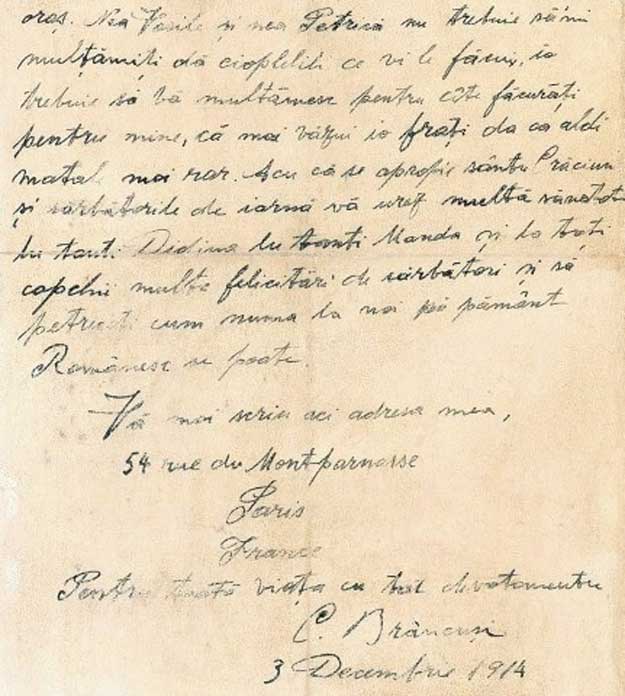 oraș. Nea Vasile și nea Petrică nu trebuie să'mi
mulțămiți dă cioplelili ce vi le făcui, io
trebuie să vă mulțămesc pentru câte făcurăți
pentru mine, că mai văzui io frați da ca aldi
matali mai rar. Acu că se apropie sântu Crăciun
și sărbătorile de iarnă vă urez multă sănătate
lu tanti Didina lu tanti Manda și la toți
copchii multe felicitări de sărbători și să
petreceți cum numa la noi pă pământ
Românesc se poate.
Vă mai scriu aci adresa mea,
54 rue du Montparnasse
Paris
France
Pentru toată viața cu tot devotamentu
C. Brâncuși
3 Decembrie 1914